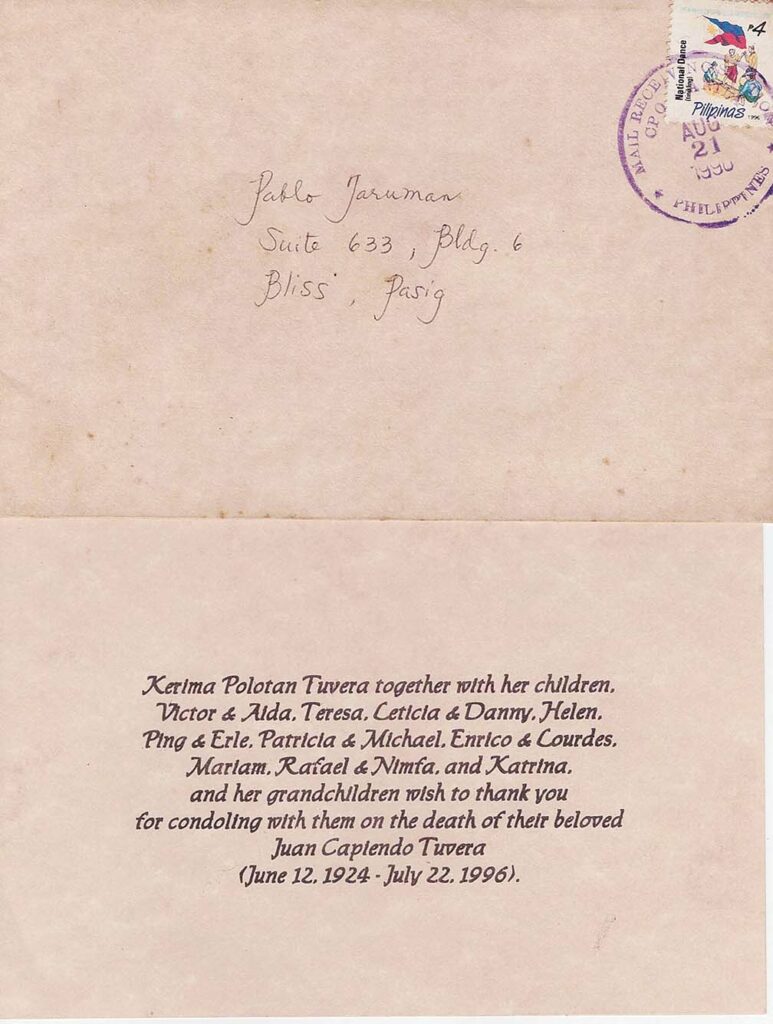 ₱4
National Dance
(Itik-itik)
Pilipinas 1996
MAIL RECEIVING
CPO
AUG
21
PHILIPPINES
Pablo Taruman
Suite 633, Bldg. 6
Bliss, Pasig
Kerima Polotan Tuvera together with her children,
Victor & Aida, Teresa, Leticia & Danny, Helen,
Ping & Erle, Patricia & Michael, Enrico & Lourdes,
Mariam, Rafael & Nimfa, and Katrina,
and her grandchildren wish to thank you
for condoling with them on the death of their beloved
Juan Capiendo Tuvera
(June 12, 1924 - July 22, 1996).